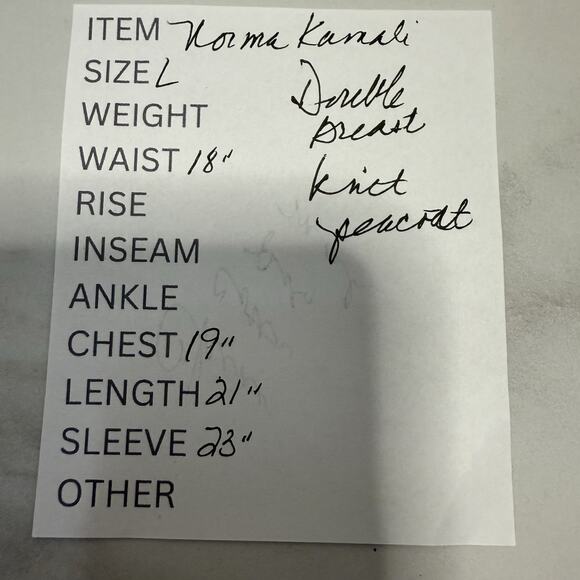 ITEM Norma Kamali
SIZE L
Double
WEIGHT
breast
WAIST 18"
knit
RISE
peacoat
INSEAM
ANKLE
CHEST 19"
LENGTH 21"
SLEEVE 23"
OTHER